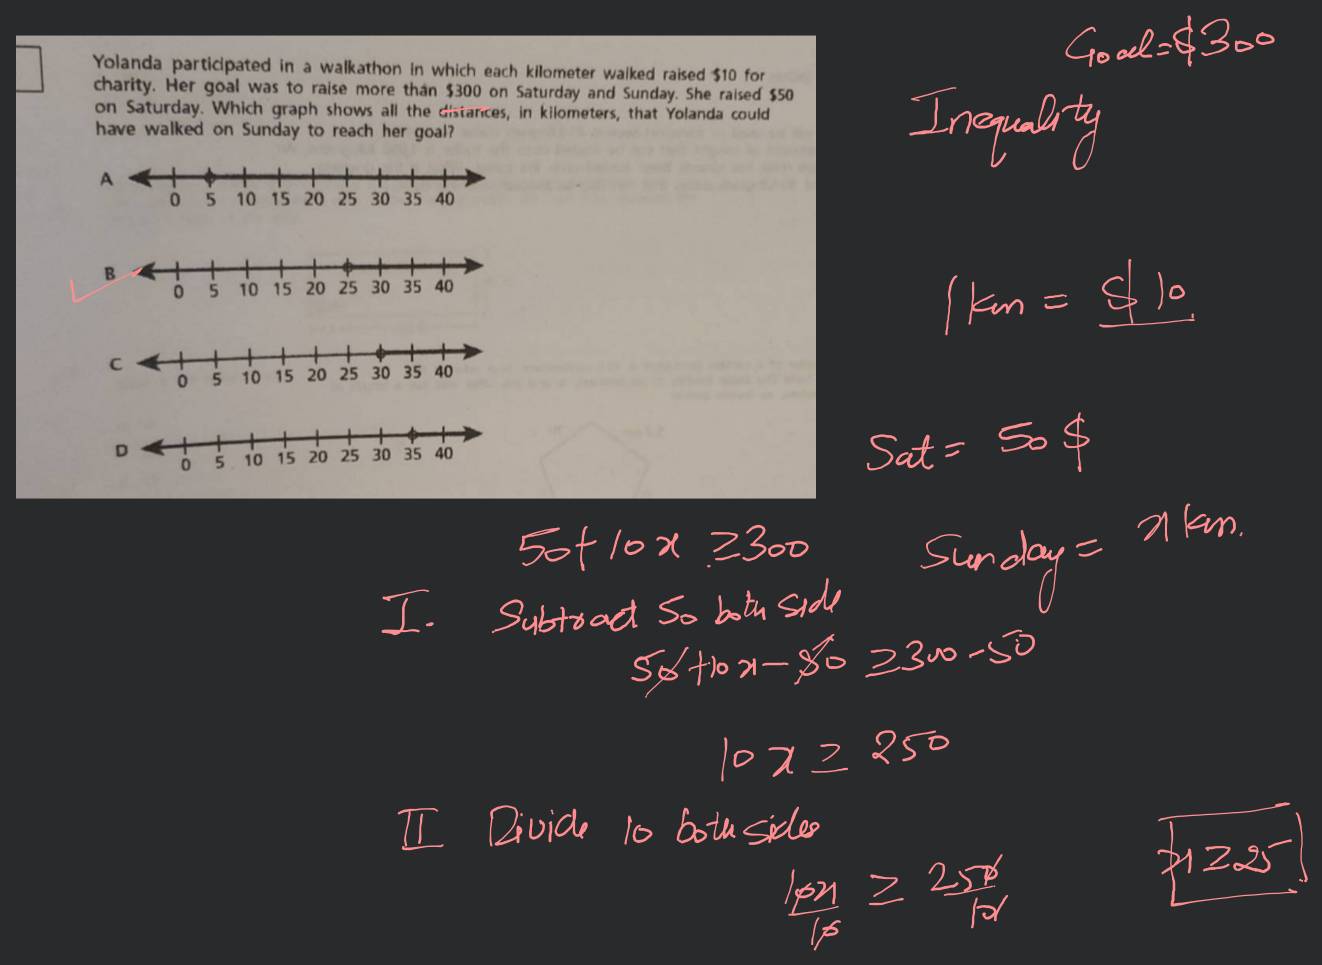 Yolanda participated in a walkathon in which each kilometer walked raised $10 for
charity. Her goal was to raise more than $300 on Saturday and Sunday. She raised $50
on Saturday. Which graph shows all the distances, in kilometers, that Yolanda could
have walked on Sunday to reach her goal?
A
0 5 10 15 20 25 30 35 40
B
0 5 10 15 20 25 30 35 40
C
0 5 10 15 20 25 30 35 40
D
0 5 10 15 20 25 30 35 40
Goal=$300
Inequality
1km = $10
Sat = 50$
Sunday = x km.
50+10x ≥300
I. Subtract 50 both side
50+10x-50 ≥300-50
10x ≥ 250
II Divide 10 both sides
10x/10 ≥ 250/10
x≥25